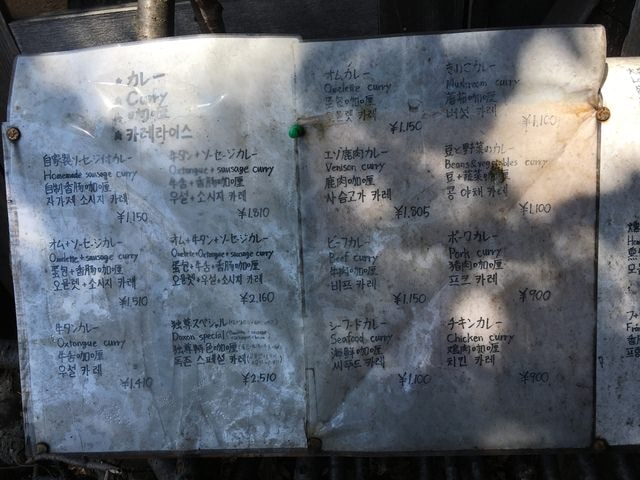 ★カレー
★Curry
★咖喱
★카레라이스
自家製ソーセージカレー
Homemade sausage curry
自制香腸咖喱
자가제 소시지 카레
¥1,150
牛タン+ソーセージカレー
Oxtongue + sausage curry
牛舌+香腸咖喱
우설+소시지 카레
¥1,810
オム+ソーセージカレー
Omelette + sausage curry
蛋包+香腸咖喱
오믈렛+소시지 카레
¥1,510
オム+牛タン+ソーセージカレー
Omelette+Oxtongue+sausage curry
蛋包+牛舌+香腸咖喱
오믈렛+우설+소시지 카레
¥2,160
牛タンカレー
Oxtongue curry
牛舌咖喱
우설 카레
¥1,410
独尊スペシャル
Doxon special
独尊特色咖喱
독존 스페셜 카레
¥2,510
オムカレー
Omelette curry
蛋包咖喱
오믈렛 카레
¥1,150
きのこカレー
Mushroom curry
버섯 카레
¥1,100
エゾ鹿肉カレー
Venison curry
鹿肉咖喱
사슴고기 카레
¥1,805
豆と野菜のカレー
Beans & vegetables curry
豆+蔬菜咖喱
콩 야채 카레
¥1,100
ビーフカレー
Beef curry
牛肉咖喱
비프 카레
¥1,150
ポークカレー
Pork curry
猪肉咖喱
포크 카레
¥900
シーフードカレー
Seafood curry
海鮮咖喱
씨푸드 카레
¥1,100
チキンカレー
Chicken curry
鶏肉咖喱
치킨 카레
¥900